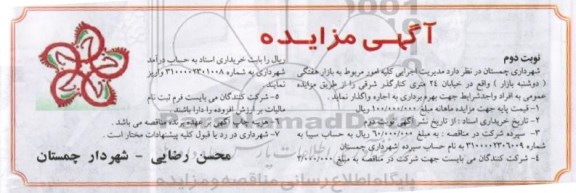 آگهی مزایده
نوبت دوم
شهرداری چمستان در نظر دارد مدیریت اجرایی کلیه امور مربوط به بازار هفتگی
( دوشنبه بازار ) واقع در خیابان ۲۴ متری کنارگذر شرقی را از طریق مزایده
عمومی به افراد واجدشرایط جهت بهره برداری به اجاره واگذار نماید .
۱- قیمت پایه جهت مزایده ماهانه مبلغ ۱۰۰/۰۰۰/۰۰۰ ریال
۲- تاریخ خریداری اسناد : از تاریخ نشر آگهی نوبت دوم
۳- سپرده شرکت در مناقصه : به مبلغ ۶۰/۰۰۰/۰۰۰ ریال به حساب سیبا به
شماره ۳۱۰۰۰۰۲۳۰۶۰۰۹ به نام حساب سپرده شهرداری چمستان
۴- شرکت کنندگان می بایست جهت شرکت در مناقصه به مبلغ ۲/۰۰۰/۰۰۰
ریال را بابت خریداری اسناد به حساب درآمد
شهرداری به شماره ۳۱۰۰۰۰۲۳۰۱۰۰۸ واریز
نمایند.
۵- شرکت کنندگان می بایست فرم ثبت نام
مالیات بر ارزش افزوده را دارا باشند .
مناقصه می باشد .
۷- شهرداری در رد یا قبول کلیه پیشنهادات مختار است .
محسن رضایی - شهردار چمستان
پایگاه اطلاع رسانی مناقصه و مزایده